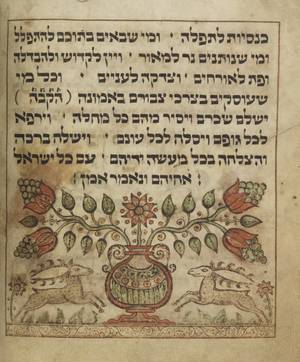 כנסיות לתפלה ׳ ומי שבאים בתוכם להתפלל
ומי שנותנים נר למאור ׳ ויין לקדוש ולהבדלה
ופת לאורחים ׳ וצדקה לעניים ׳ וכל מי
שעוסקים בצרכי צבורים באמונה (הקבה)
ישלם שכרם ויסיר מהם כל מחלה ׳ וירפא
לכל גופם ויסלח לכל עונם ׳ וישלח ברכה
והצלחה בכל מעשה ידיהם ׳ עם כל ישראל
אחיהם ונאמר אמן׃